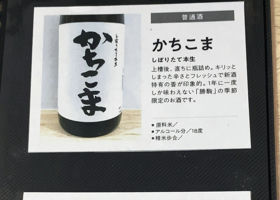 普通酒
かちこま
しぼりたて本生
上槽後、直ちに瓶詰め。キリッと
しまった辛さとフレッシュで新酒
特有の香が印象的。1年に一度
しか味わえない「勝駒」の季節
限定のお酒です。
●原料米／
●アルコール分／18度
●精米歩合／
しぼりたて
かちこま